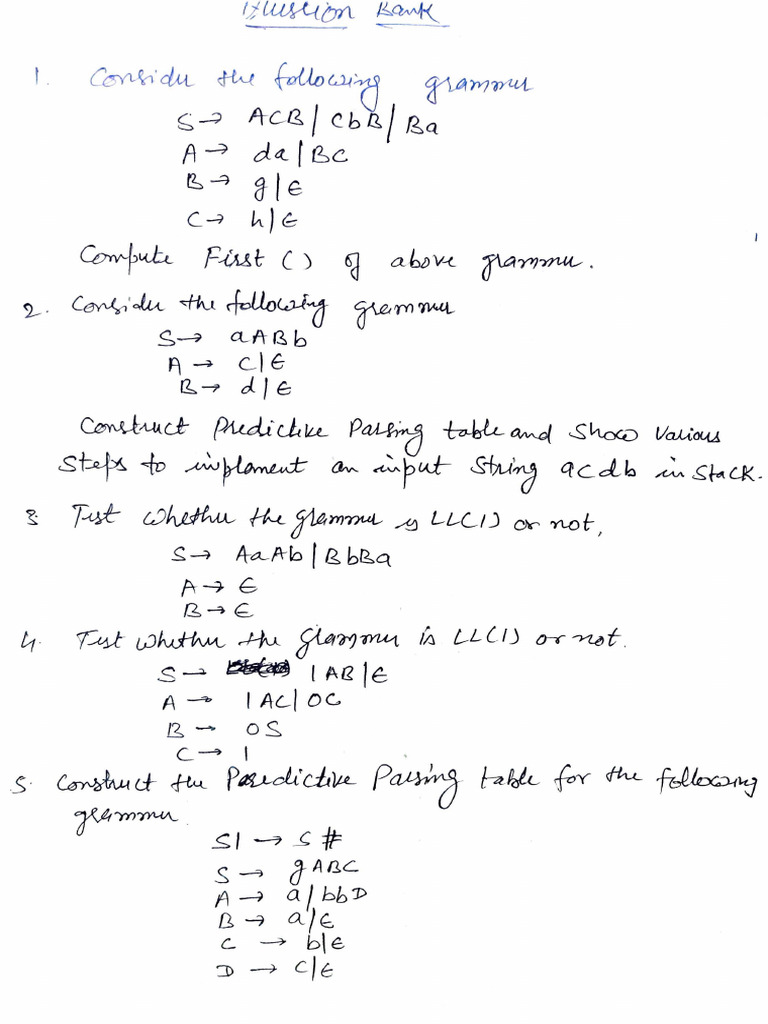 Question Bank
1. Consider the following grammer
S → ACB | CbB | Ba
A → da | BC
B → g | ϵ
C → h | ϵ
Compute First () of above grammer.
2. Consider the following grammer
S → aABb
A → c | ϵ
B → d | ϵ
Construct Predictive Parsing table and Show Various
Steps to implement an input String acdb in Stack.
3. Test Whether the grammer is LL(1) or not,
S → AaAb | BbBa
A → ϵ
B → ϵ
4. Test Whether the Grammer is LL(1) or not.
S → 1AB | ϵ
A → 1AC | 0C
B → 0S
C → 1
5. Construct the Predictive Parsing table for the following
grammer
S1 → S #
S → gABC
A → a / bbD
B → a / ϵ
C → b | ϵ
D → c / ϵ